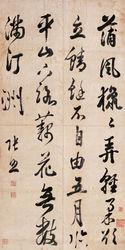 蒲風獵々弄輕柔欲
立蜻蜓不自由五月臨
平山下路藕花無數
滿汀洲 張照